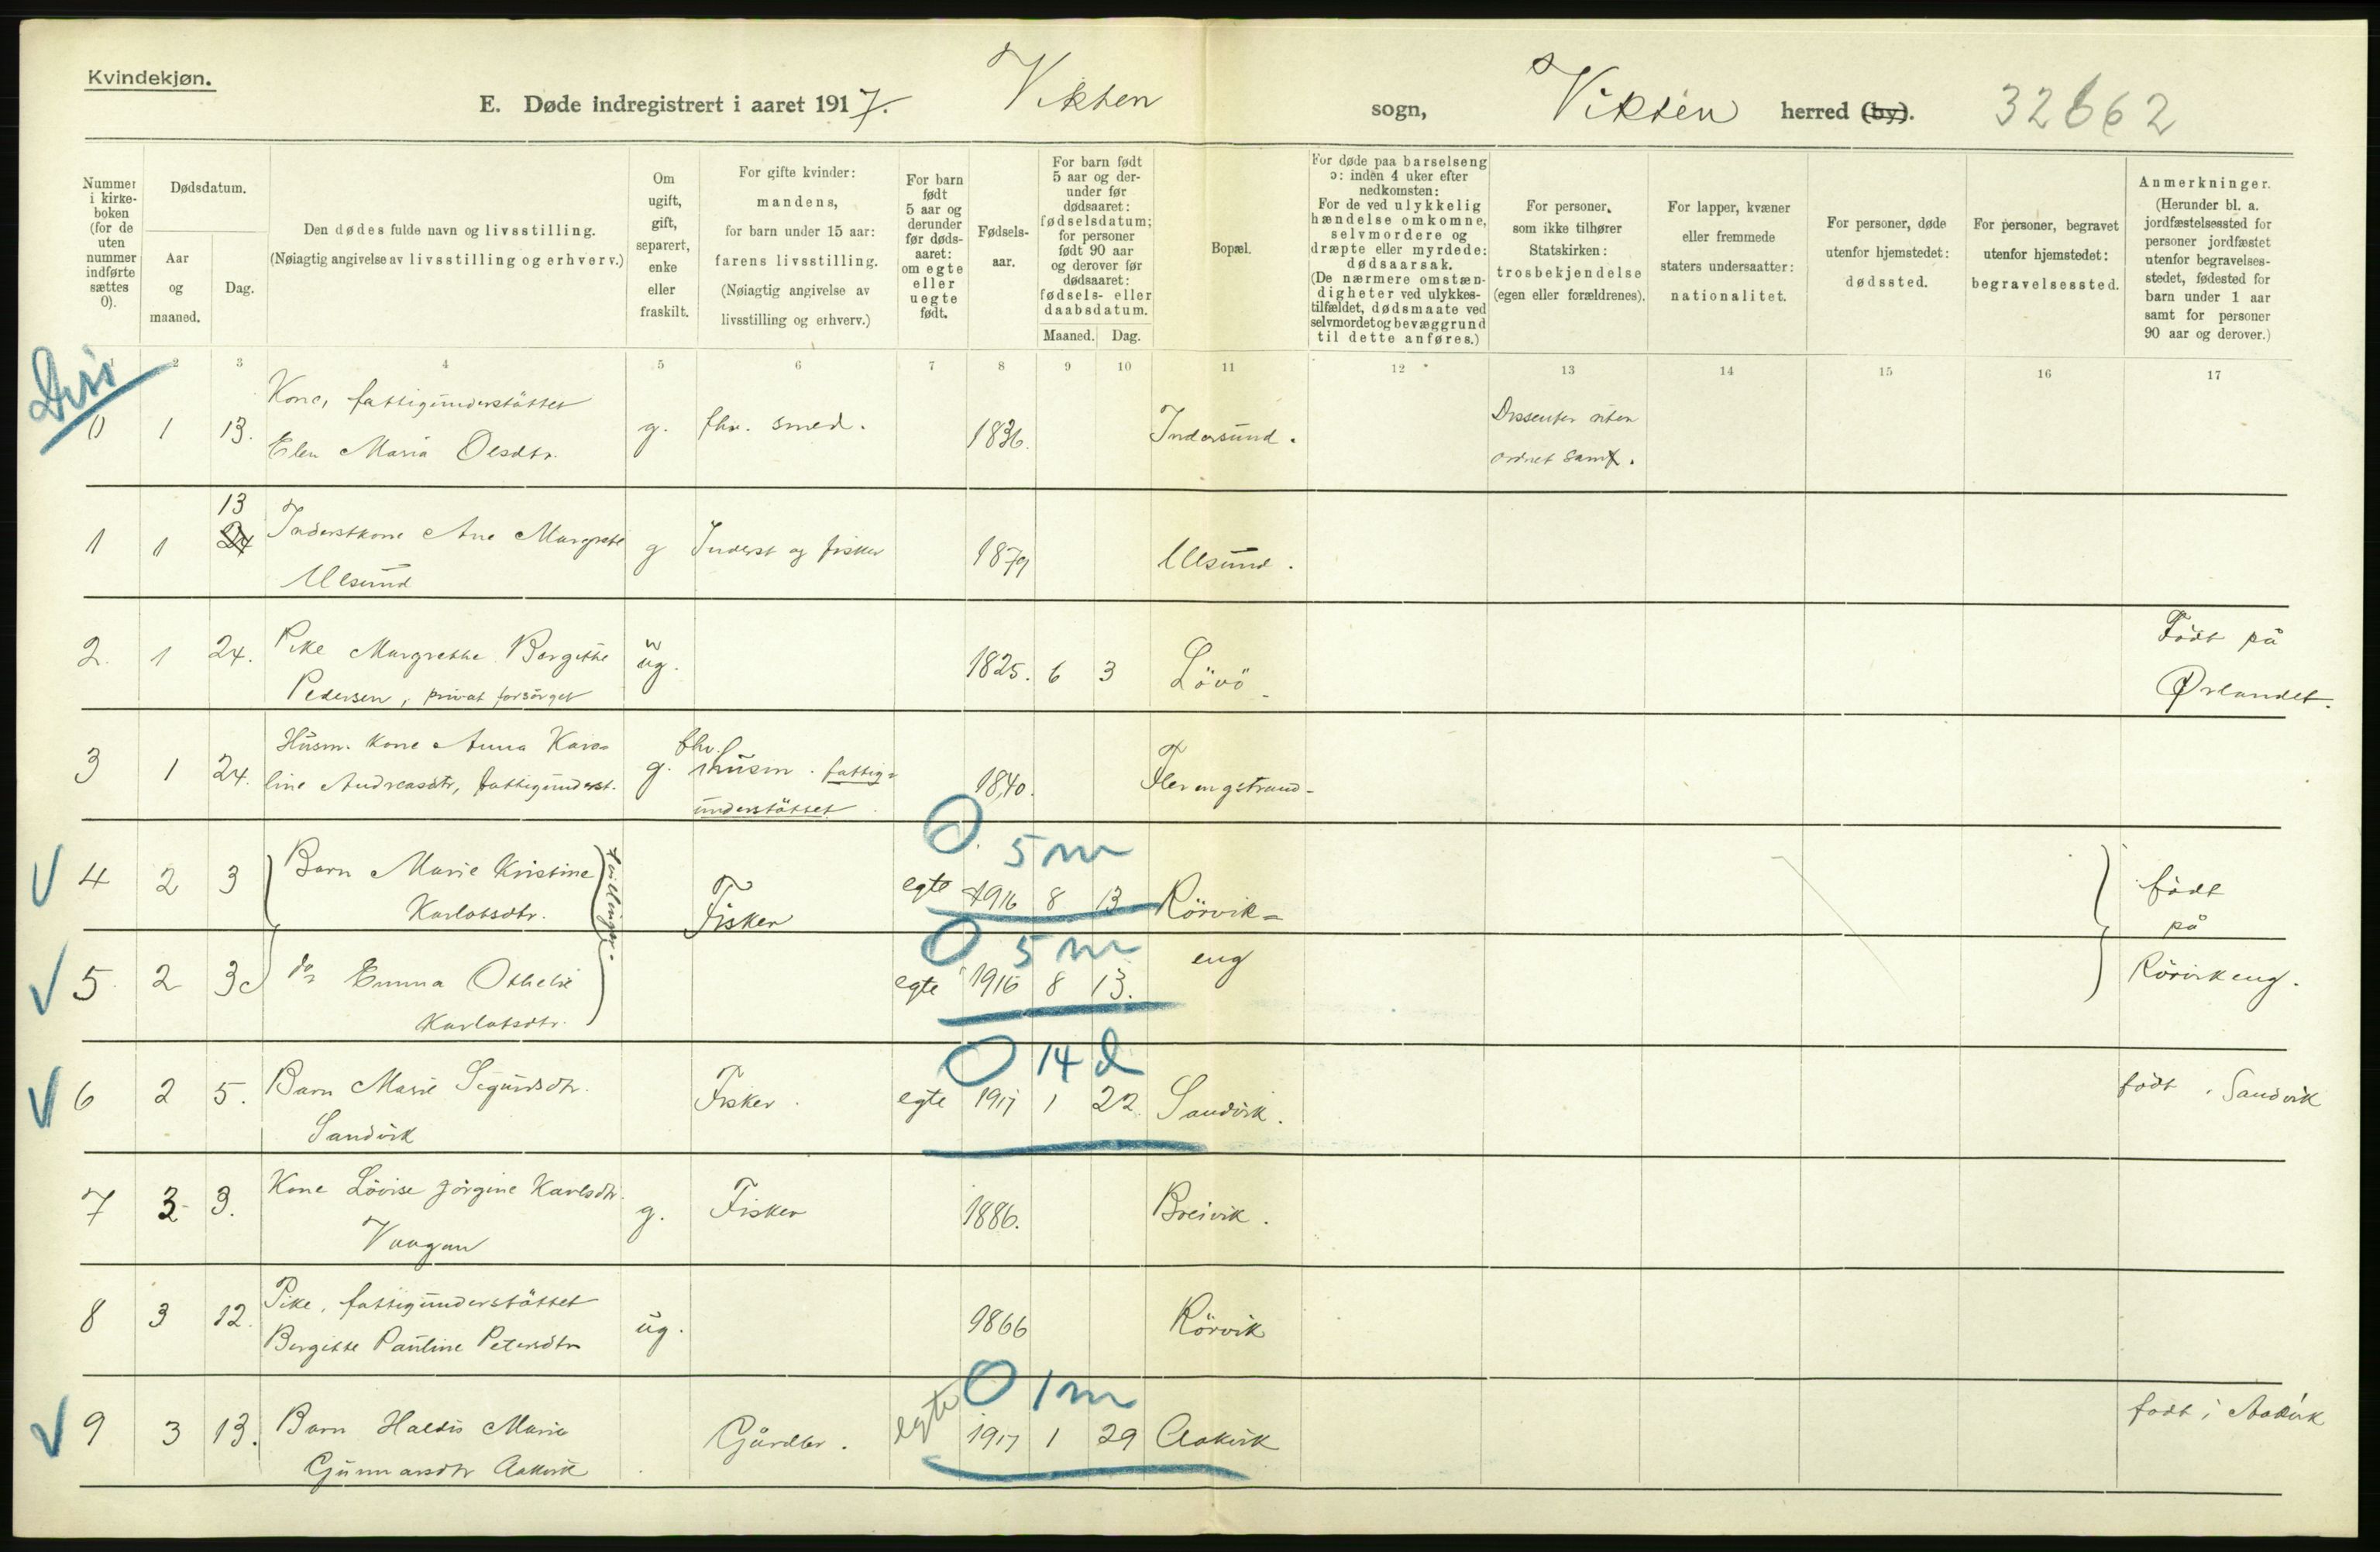 Kvindekjøn.
E. Døde indregistrert i aaret 1917. Vikten sogn, Vikten herred (by). 32662
Nummer i kirke-boken (for de uten nummer indførte sættes 0).
Dødsdatum.
Aar og maaned.
Dag.
Den dødes fulde navn og livsstilling.
(Nøiagtig angivelse av livsstilling og erhverv.)
Om ugift, gift, separert, enke eller fraskilt.
For gifte kvinder: mandens, for barn under 15 aar: farens livsstilling. (Nøiagtig angivelse av livsstilling og erhverv.)
For barn født 5 aar og derunder før døds-aaret: om egte eller uegte født.
Fødsels-aar.
For barn født 5 aar og der-under før dødsaaret: fødselsdatum; for personer født 90 aar og derover før dødsaaret: fødsels- eller daabsdatum.
Maaned. Dag.
Bopæl.
For døde paa barselseng ɔ: inden 4 uker efter nedkomsten: For de ved ulykkelig hændelse omkomne, selvmordere og dræpte eller myrdede: dødsaarsak. (De nærmere omstæn-digheter ved ulykkes-tilfældet, dødsmaate ved selvmordet og bevæggrund til dette anføres.)
For personer, som ikke tilhører Statskirken: trosbekjendelse (egen eller forældrenes).
For lapper, kvæner eller fremmede staters undersaatter: nationalitet.
For personer, døde utenfor hjemstedet: dødssted.
For personer, begravet utenfor hjemstedet: begravelsessted.
Anmerkninger. (Herunder bl. a. jordfæstelsessted for personer jordfæstet utenfor begravelses-stedet, fødested for barn under 1 aar samt for personer 90 aar og derover.)
1 2 3 4 5 6 7 8 9 10 11 12 13 14 15 16 17
Diss
0 1 13. Kone, fattigunderstöttet
Elen Maria Olsdtr. g. fhv. smed. 1836. Indersund. Dissenter uten
ordnet samf.
13
1 1 24 Inderstkone Ane Margrete g Inderst og fisker 1879 Ulsund.
Ulsund
2. 1 24. Pike Margrethe Bergitte ug. 1825. 6 3 Lövö Födt på
Pedersen, privat forsörget Ørlandet.
3 1 24. Husm. kone Anna Karo= g. fhv. husm. fattig=
line Andreasdtr, fattigunderst. understöttet 1840. Flerengstrand
O. 5 m
4 2 3 Barn Marie Kristine tvillinger. Fisker egte 1916 8 13 Rörvik= födt
Karlotsdtr. på
O 5 m
5. 2 3 do Emma Othelie egte 1916 8 13. eng Rörvikeng.
Karlotsdtr.
O 14 d
6 2 5. Barn Marie Sigurdsdtr. Fisker. egte 1917 1 22 Sandvik. födt i Sandvik
Sandvik
7 3 3. Kone Lovise Jörgine Karlsdtr. g. Fisker 1886. Breivik.
Vaagan
8 3 12. Pike, fattigunderstöttet
Bergitte Pauline Petersdtr ug. 1866 Rörvik
O 1 m
9 3 13. Barn Haldis Marie Gårdbr. egte 1917 1 29 Aakvik födt i Aakvik
Gunnarsdtr Aakvik